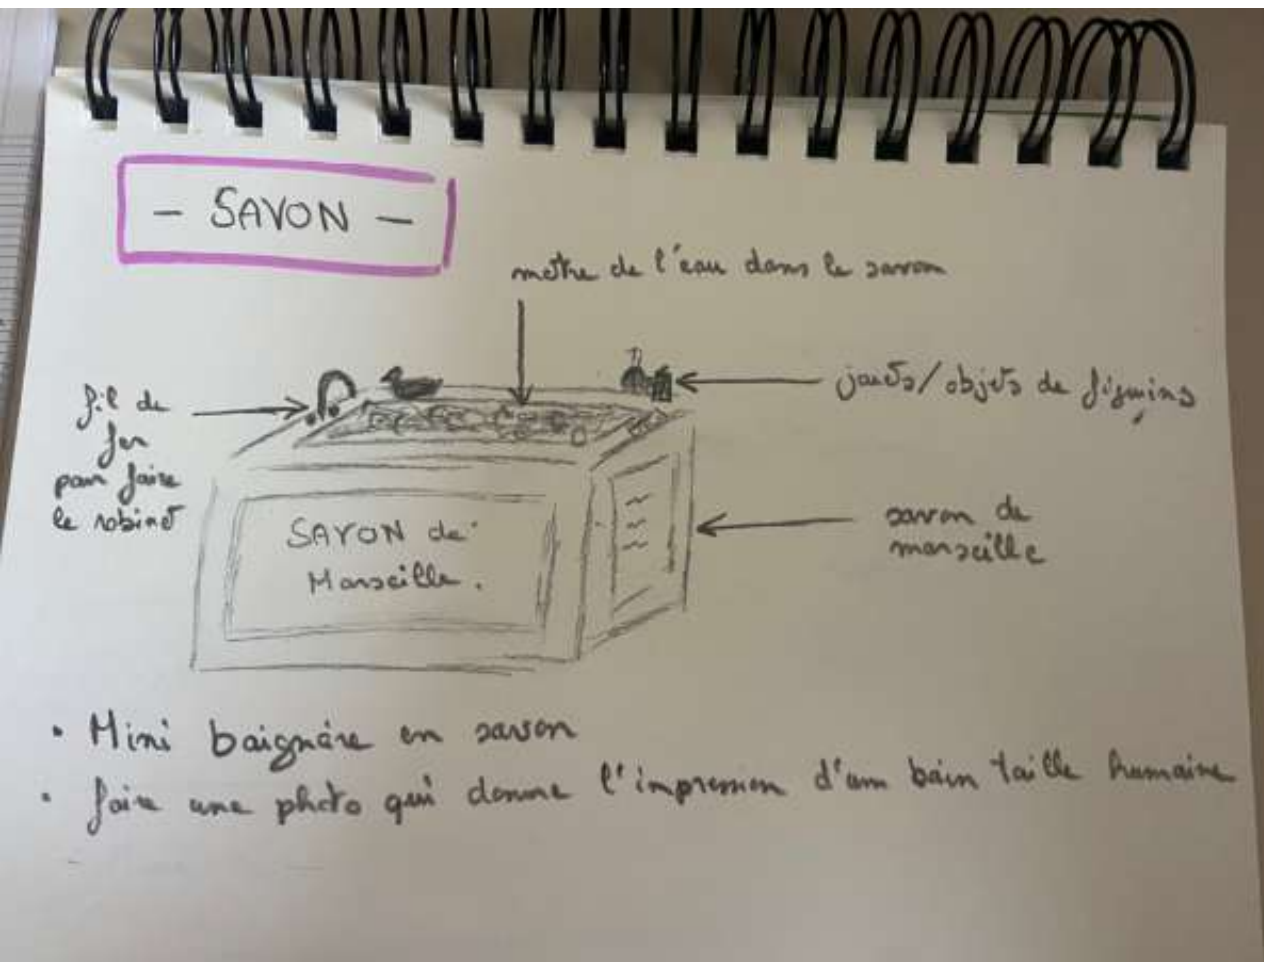 - SAVON -
mettre de l'eau dans le savon
fil de
fer
pour faire
le robinet
jouets/objets de figurins
SAVON de
Marseille.
savon de
marseille
• Mini baignoire en savon
• faire une photo qui donne l'impression d'un bain taille humaine